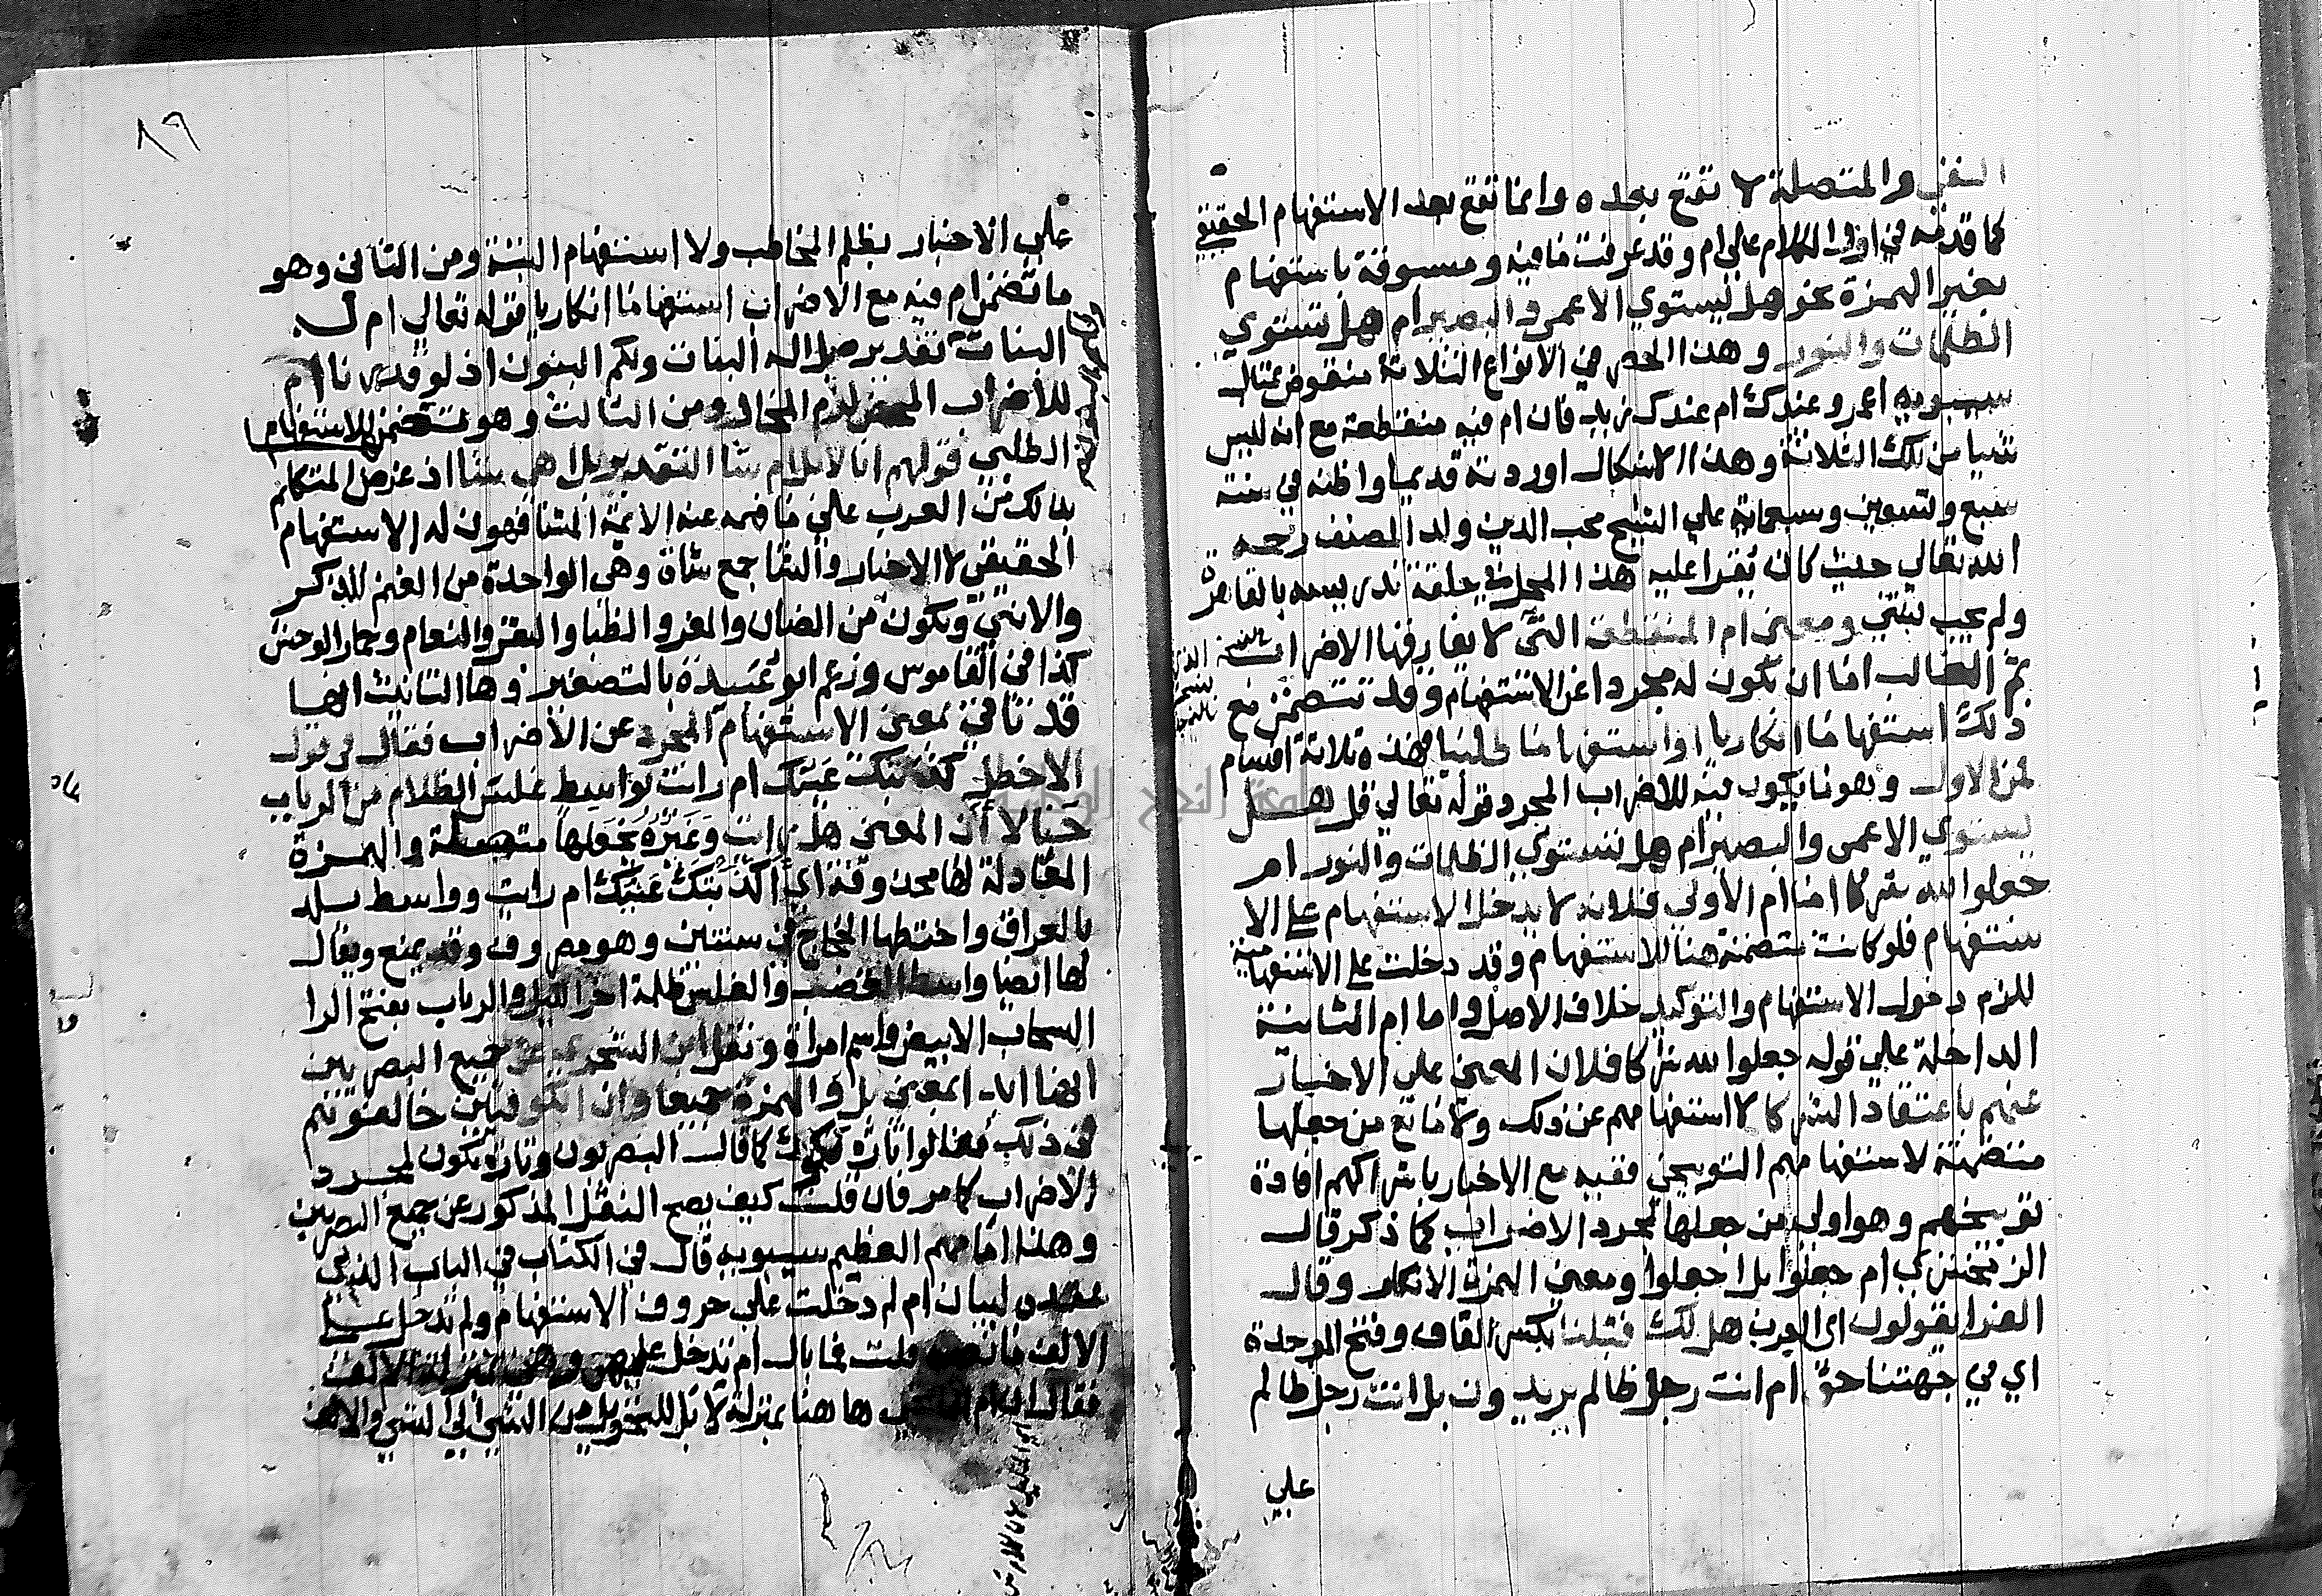 النفي والمتصلة لا تقع بعده وانما تقع بعد الاستفهام الحقيقي
كما قدمه في اول الكلام على ام وقد عرفت ما فيه ومسبوقة باستفهام
بغير الهمزة نحو هل يستوي الاعمى والبصير ام هل تستوي
الظلمات والنور وهذا الحصر في الانواع الثلاثة منقوض بمثال
سيبويه اعمرو عندك ام عندك زيد فان ام فيه منقطعة مع انه ليس
شيا من تلك الثلاثة وهذا الاشكال اوردته قديما واظنه في سنة
سبع وتسعين وسبعماية على الشيخ محب الدين ولد المصنف رحمه
الله تعالى حيث كان يقرا عليه هذا المحل في حلقة تدريسه بالقاهرة
ولم يجب بشي ومعنى ام المنقطعة التي لا يفارقها الاضراب
ثم الغالب اما ان تكون له مجردا عن الاستفهام وقد تتضمن مع
ذلك استفهاما انكاريا او استفهاما طلبيا فهذه ثلاثة اقسام
فمن الاول وهو ما تكون فيه للاضراب المجرد قوله تعالى قل هل
يستوي الاعمى والبصير ام هل تستوي الظلمات والنور ام
جعلوا لله شركا اما ام الاولى فلانه لا يدخل الاستفهام على الا
ستفهام فلو كانت متضمنة هنا للاستفهام وقد دخلت على الاستفهامية
للزم دخول الاستفهام والتوكيد خلاف الاصل واما ام الثانية
الداخلة على قوله جعلوا لله شركا فلان المعنى على الاخبار
عنهم باعتقاد الشركا لا استفهامهم عن ذلك ولا مانع من جعلها
متضمنة لاستفهامهم التوبيخي ففيه مع الاخبار باشراكهم افادة
توبيخهم وهو اولى من جعلها لمجرد الاضراب كما ذكر قال
الزمخشري ام جعلوا بل اجعلوا ومعنى الهمزة الانكار وقال
الفرا يقولون اي العرب هل لك قبلنا بكسر القاف وفتح الموحدة
اي في جهتنا حق ام انت رجل ظالم يريدون بل انت رجل ظالم
علي
٨٩
علي الاخبار بظلم المخاطب ولا استفهام البتة ومن الثاني وهو
ما تضمن ام فيه مع الاضراب استفهاما انكاريا قوله تعالى ام له
البنات تقديره بل اله البنات ولكم البنون اذ لو قدرناها
للاضراب المحض لزم المحال ومن الثالث وهو تضمنها للاستفهام
الطلبي قولهم انها لابل ام شا التقدير بل اهي شا اذ غرض المتكلم
بذلك من العرب على ما فهمه عنه الايمة المشافهون له الاستفهام
الحقيقي لا الاخبار والشا جمع شاة وهي الواحدة من الغنم للذكر
والانثى وتكون من الضان والمعز والظبا والبقر والنعام وحمار الوحش
كذا في القاموس وزعم ابو عبيدة بالتصغير وها التانيث انها
قد تاتي بمعنى الاستفهام المجرد عن الاضراب فقال في قول
الاخطل كذبتك عينك ام رايت بواسط غلس الظلام من الرباب
خيالا ان المعنى هل رايت وغيره يجعلها متصلة والهمزة
المعادلة لها محذوفة اي اكذبتك عينك ام رايت وواسط بلد
بالعراق واختطها الحجاج في سنتين وهو مصروف وقد يمنع ويقال
لها ايضا واسط القصب والغلس ظلمة اخر الليل والرباب بفتح الرا
السحاب الابيض واسم امراة ونقل ابن الشجري عن جميع البصريين
انها ابدا بمعنى بل والهمزة جميعا وان الكوفيين خالفوهم
في ذلك فقالوا تارة تكون كما قال البصريون وتارة تكون لمجرد
الاضراب كما مر فان قلت كيف يصح النقل المذكور عن جميع البصريين
وهذا امامهم العظيم سيبويه قال في الكتاب في الباب الذي
عقده لبيان ام لم دخلت على حروف الاستفهام ولم تدخل على
الالف ما نصه قلت فما بال ام تدخل عليهن وهي بمنزلة الالف
فقال ام هاهنا بمنزلة لا بل للتحويل من الشي الى الشي والالف